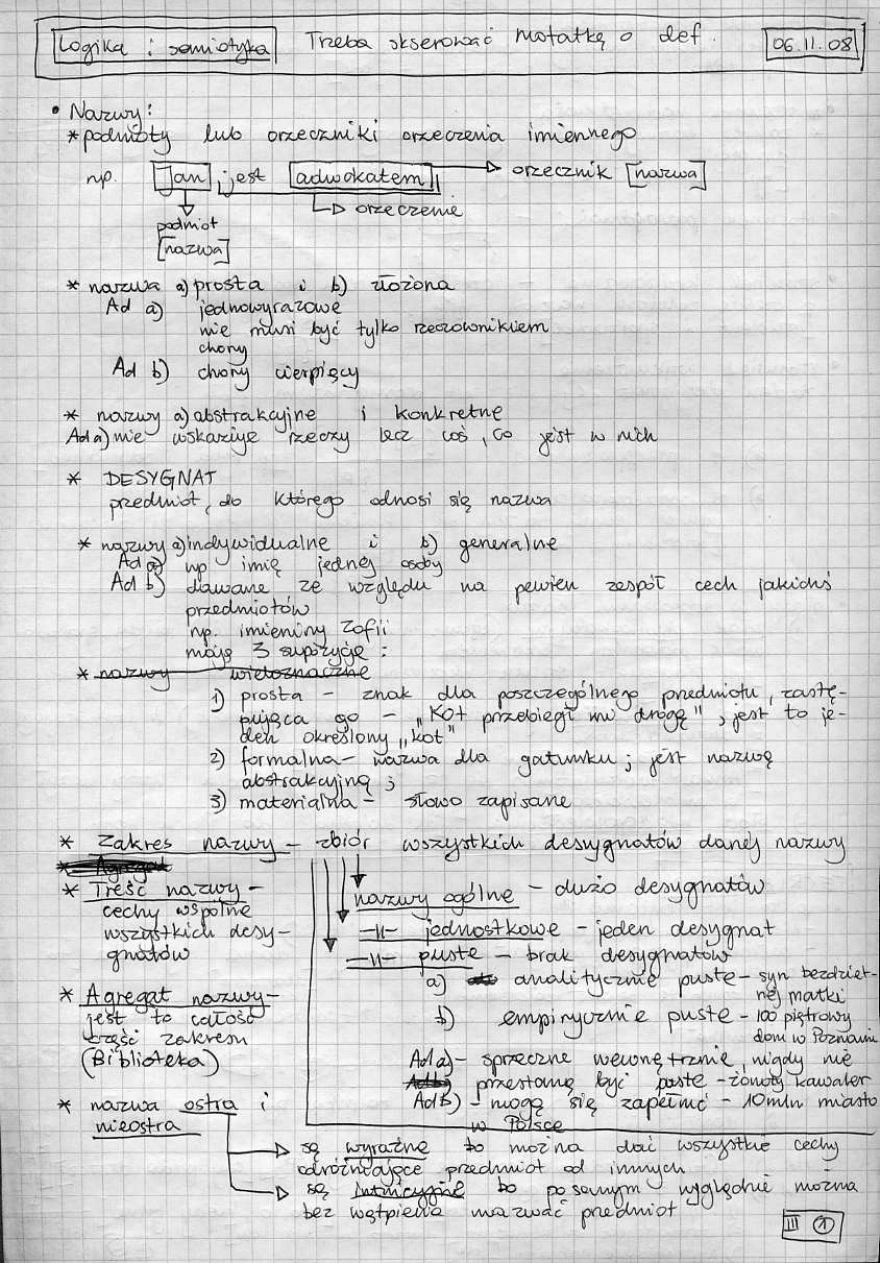 Logika i semiotyka Treba skserować notatkę o def. 06.11.08
• Nazwy:
* podmioty lub orzeczniki orzeczenia imiennego
np. Jan jest adwokatem → orzecznik [nazwa]
↳ orzeczenie
podmiot
[nazwa]
* nazwa a) prosta i b) złożona
Ad a) jednowyrazowe
nie musi być tylko rzeczownikiem
chory
Ad b) chory cierpiący
* nazwy a) abstrakcyjne i konkretne
Ad a) nie wskazuje rzeczy lecz coś, co jest w nich
* DESYGNAT
przedmiot, do którego odnosi się nazwa
* nazwy a) indywidualne i b) generalne
Ad a) np imię jednej osoby
Ad b) dawane ze względu na pewien zespół cech jakichś
przedmiotów
np. imieniny Zofii
mają 3 supozycje:
* nazwy wieloznaczne
1) prosta – znak dla poszczególnego przedmiotu, zastę-
pująca go – „Kot przebiegł mi drogę", jest to je-
den określony „kot"
2) formalna – nazwa dla gatunku; jest nazwą
abstrakcyjną;
3) materialna – słowo zapisane
* Zakres nazwy – zbiór wszystkich desygnatów danej nazwy
* Agregat
* Treść nazwy –
cechy wspólne
wszystkich desy-
gnatów
nazwy ogólne – dużo desygnatów
–||– jednostkowe – jeden desygnat
–||– puste – brak desygnatów
a) analitycznie puste – syn bezdziet-
nej matki
b) empirycznie puste – 100 piętrowy
dom w Poznaniu
Ad a) – sprzeczne wewnętrznie, nigdy nie
Ad b) przestaną być puste – żonaty kawaler
Ad b) – mogą się zapełnić – 10 mln miasto
w Polsce
* Agregat nazwy –
jest to całość
część zakresu
(Biblioteka)
* nazwa ostra i
nieostra
→ są wyraźne bo można dać wszystkie cechy
odróżniające przedmiot od innych
→ są intuicyjne bo po samym wyglądzie można
bez wątpienia nazwać przedmiot
III 1